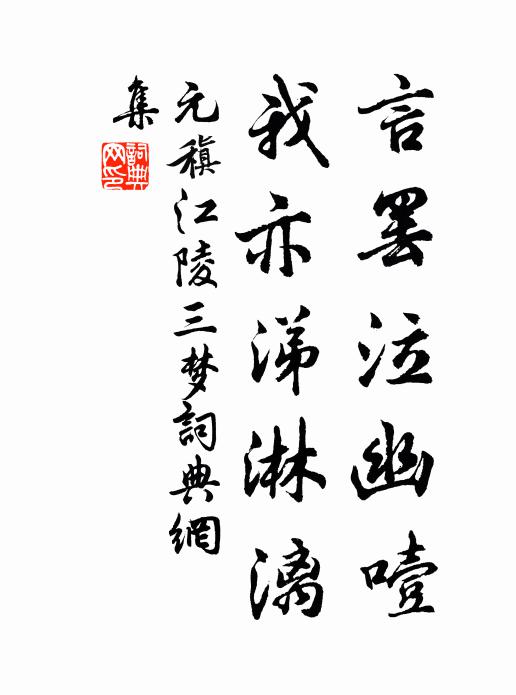 言罷泣幽噎
我亦涕淋漓
元稹江陵三梦詞典網
集
詞典網印